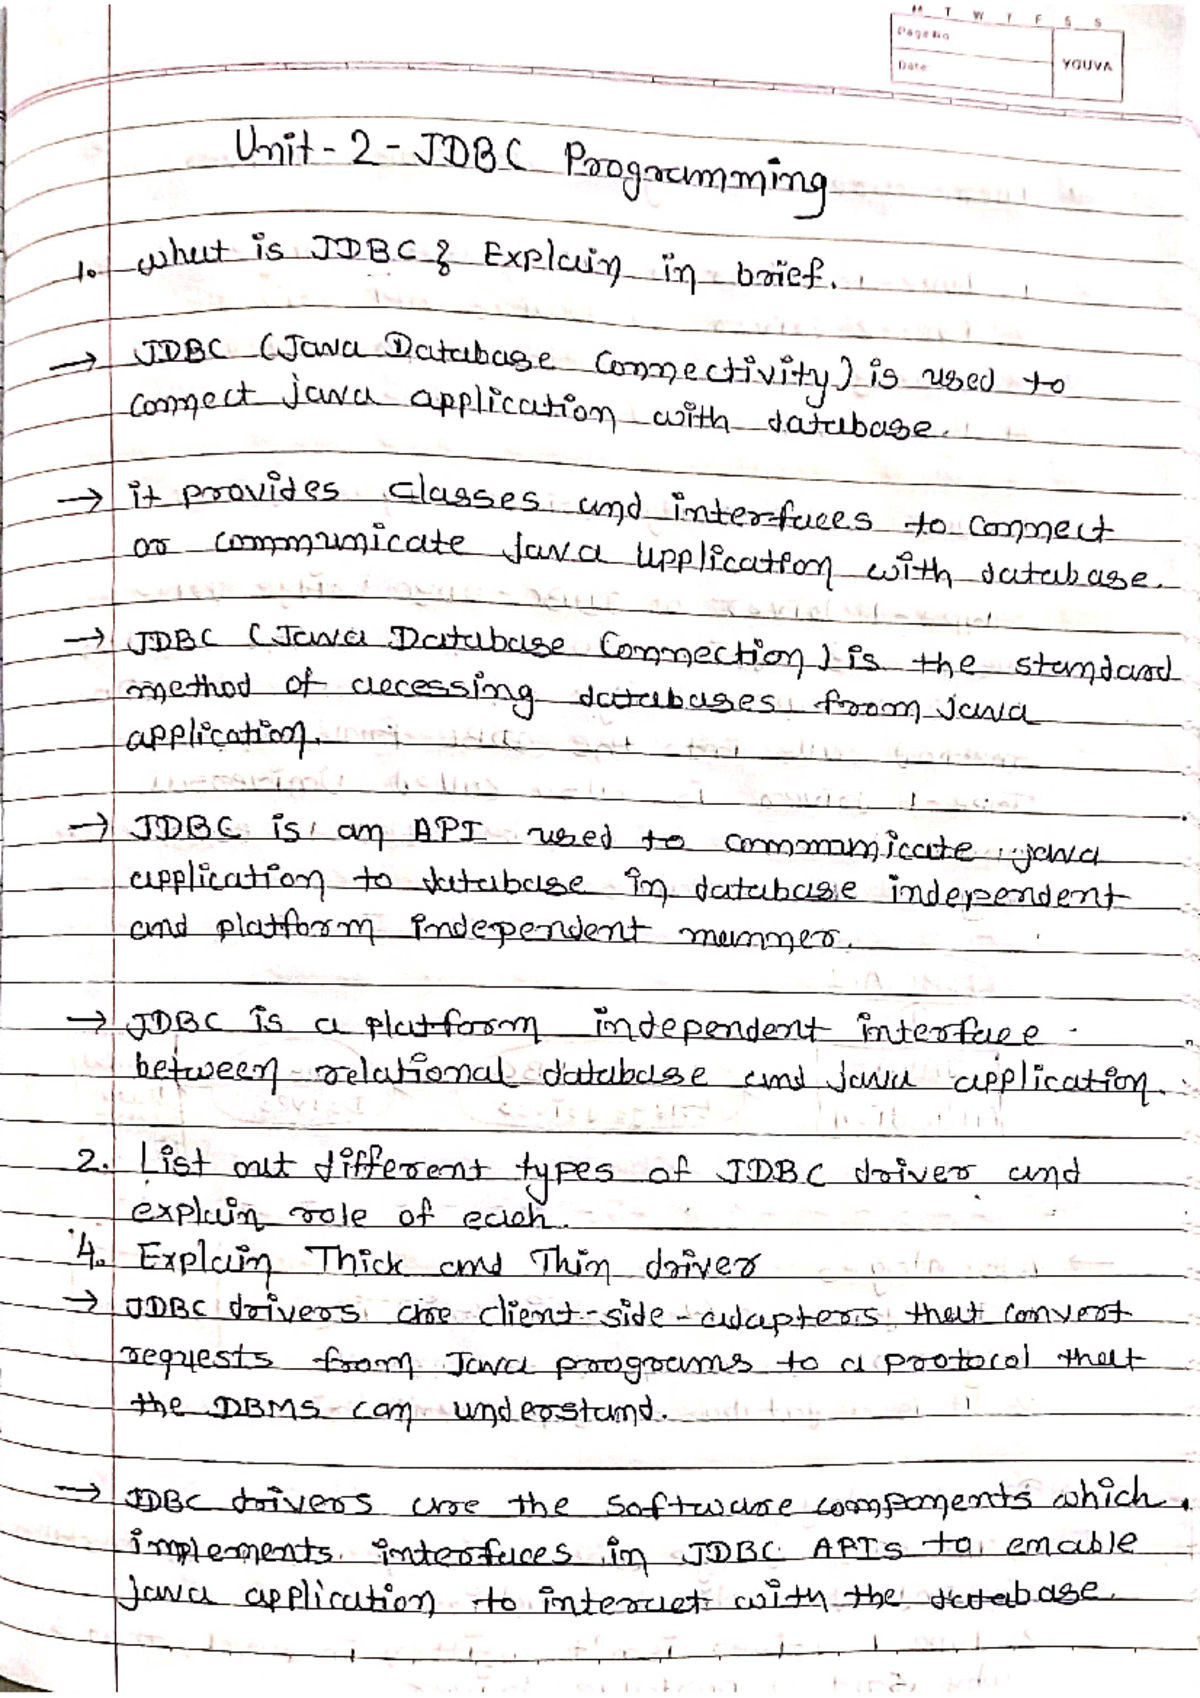 M T W T F S S
Page No
Date
YOUVA
Unit-2-JDBC Programming
1. what is JDBC? Explain in brief.
→ JDBC (Java Database Connectivity) is used to
connect java application with database.
→ it provides classes and interfaces to connect
or communicate java application with database.
→ JDBC (Java Database Connection) is the standard
method of accessing databases from java
application.
→ JDBC is an API used to communicate java
application to database in database independent
and platform independent manner.
→ JDBC is a platform independent interface
between relational database and java application.
2. List out different types of JDBC driver and
explain role of each.
4. Explain Thick and Thin driver
→ JDBC drivers are client-side-adapters that convert
requests from Java programs to a protocol that
the DBMS can understand.
→ JDBC drivers are the software components which
implements interfaces in JDBC APIs to enable
java application to interact with the database.